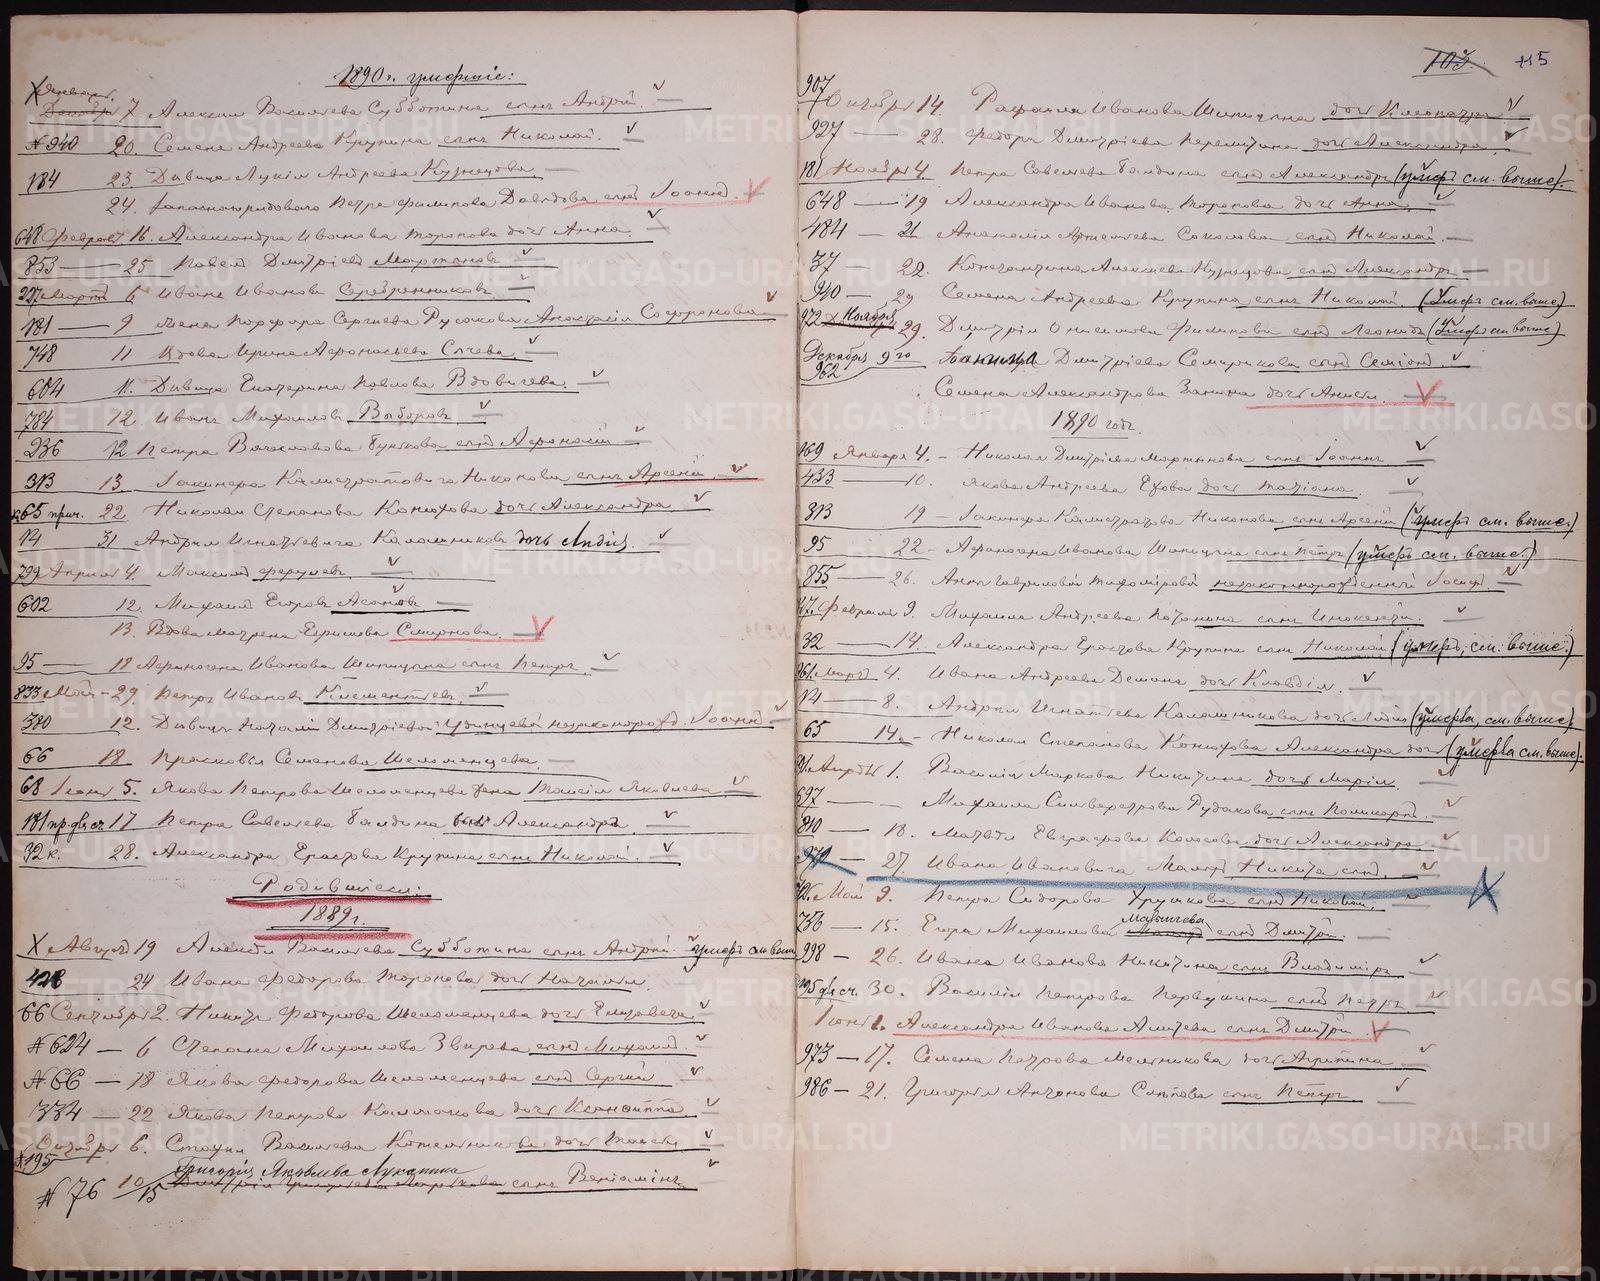 1890 г. умершіе:
Январь
7 Алексѣя Васильева Субботина сынъ Андрей.
№ 940 20. Семена Андреева Крупина сынъ Николай.
184 23. Дѣвица Лукія Андреева Кузнецова
24. Запаснорядового Петра Филипова Давыдова сынъ Іоаннъ.
648 Февраль 16. Александра Иванова Торопова дочь Анна.
853 — 25 Павелъ Дмитріевъ Мартьяновъ
227 Мартъ 6 Иванъ Ивановъ Серебренниковъ
181 — 9 Жена Порфира Сергѣева Русакова Анастасія Софронова
748 11 Вдова Ирина Афонасьева Сычева
604 11. Дѣвица Екатерина Павлова Вдовичева.
784 12. Иванъ Михаиловъ Выборовъ
236 12 Петра Вячеславова сынъ Афонасій
313 13. Закинера Калистратовича Никонова сынъ Арсеній
65 прич. 22. Николая Степанова Конюхова дочь Александра
14 31 Андрея Игнатьевича Калашникова дочь Лидія.
799 Апрѣля 4. Максимъ Ферулевъ.
602 12. Михаилъ Егоровъ Асановъ
13. Вдова Матрена Ефимова Смирнова.
95 — 18 Афиногена Иванова Шипицына сынъ Петръ
833 Май - 29. Петръ Ивановъ Клементьевъ
380 12. Дѣвицы Наталіи Дмитріевой незаконорожд. Іоаннъ
66 18 Прасковья Семенова Шеломенцева.
68 Іюнь 5. Якова Петрова Шеломенцева жена Таисія Яковлева
181 пр. дв. сч. 17 Петра Савельева Балдина сынъ Александръ
32 к. 28. Александра Ерастова Крупина сынъ Николай.
Родившіеся:
1889 г.
X Августъ 19 Алексѣя Васильева Субботина сынъ Андрей умеръ см. выше
428 24 Ивана Федорова Торопова дочь Наталія.
66 Сентябрь 2. Никиты Федорова Шеломенцева дочь Елизавета.
№ 624 — 6 Степана Михайлова Звирева сынъ Михаилъ.
№ 66 — 18 Якова Федорова Шеломенцева сынъ Сергій
334 — 22 Якова Петрова Калмакова дочь Ксанѳиппа
Октябрь 6. Стахія Васильева Котельникова дочь Таисія
№ 195
Григорія Яковлева Лукоянина
№ 76 10/15 сынъ Веніаминъ
103 115
907
Октябрь 14. Рафаила Иванова Шипицына дочь Клеопатра
927 — 28. Федора Дмитріева Перемитина дочь Александра
181 Ноябрь 4. Петра Савельева Балдина сынъ Александръ (умеръ см. выше).
648 — 19 Александра Иванова Торопова дочь Анна.
484 — 21 Анатолія Артемьева Соколова сынъ Николай.
37 — 22. Константина Алексѣева Кузнецова сынъ Александръ
940 — 29 Семена Андреева Крупина сынъ Николай. (Умеръ см. выше)
972 Ноября 29. Дмитрія Онисимова Филинова сынъ Леонидъ (Умеръ см. выше)
Декабря 9го Дмитріева Семирикова сынъ Семіонъ
962
Семена Александрова Занина дочь Анисія
1890 годъ.
169 Января 4. - Николая Дмитріева Мартьянова сынъ Іоаннъ
433 — 10. Якова Андреева Ехова дочь Татіана.
313 19 - Закинера Калистратова Никонова сынъ Арсеній (умеръ см. выше.)
95 22 - Афиногена Иванова Шипицына сынъ Петръ (умеръ см. выше.)
855 — 26. Анны Гавриловой Тихомировой незаконнорожденный Іосифъ
47. Февраля 9. Михаила Андреева сынъ Инокентій
32 — 14. Александра Ерастова Крупина сынъ Николай (умеръ, см. выше.)
961. Мартъ 4. Ивана Андреева Демина дочь Клавдія.
14 — 8. Андрея Игнатьева Калашникова дочь Лидія (умерла, см. выше.)
65 14. - Николая Степанова Конюхова Александра дочь (умерла см. выше).
Апрѣль 1. Василія Маркова Никитина дочь Марія.
697 — - Михаила Силверстрова Рудакова сынъ Поликарпъ
810 — 13. Матвѣя Евграфова Колосова дочь Александра
970 — 27. Ивана Ивановича Малыхъ Никита сынъ.
Май 9. Петра Сидорова Хрушкова сынъ Николай.
736 — 15. Егора Михаилова Мавычева сынъ Дмитрій.
998 — 26. Ивана Иванова Никитина сынъ Владиміръ
195 дв. сч. 30. Василія Петрова Первушина сынъ Петръ
Іюнь 1. Александра Иванова Алипьева сынъ Дмитрій
973 — 17. Семена Петрова Мельникова дочь Агрипина
986 — 21. Григорія Антонова Слѣпова сынъ Петръ
METRIKI.GASO-URAL.RU